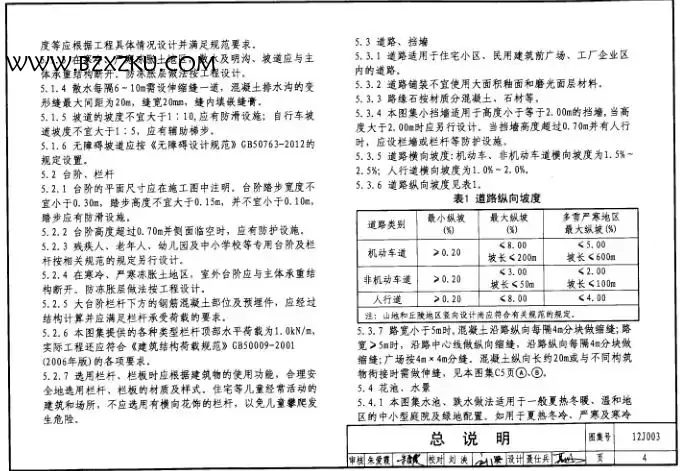 度等应根据工程具体情况设计并满足规范要求。
WWW.BZXZKU.COM
体承重结构断开。防冻胀层做法按工程设计。
5.1.4 散水每隔6~10m需设伸缩缝一道,混凝土排水沟的变
形缝最大间距为20m,缝宽20mm,缝内填嵌缝膏。
5.1.5 坡道的坡度不宜大于1:10,应有防滑设施;自行车坡
道坡度不宜大于1:5,应有辅助梯步。
5.1.6 无障碍坡道应按《无障碍设计规范》GB50763-2012的
规定设置。
5.2 台阶、栏杆
5.2.1 台阶的平面尺寸应在施工图中注明。台阶踏步宽度不
宜小于0.30m,踏步高度不宜大于0.15m,并不宜小于0.10m,
踏步应有防滑设施。
5.2.2 台阶高度超过0.70m并侧面临空时,应有防护设施。
5.2.3 残疾人、老年人、幼儿园及中小学校等专用台阶及栏
杆按相关规范的规定另行设计。
5.2.4 在寒冷、严寒冻胀土地区,室外台阶应与主体承重结
构断开。防冻胀层做法按工程设计。
5.2.5 大台阶栏杆下方的钢筋混凝土部位及预埋件,应经过
结构计算并应满足栏杆承受荷载的要求。
5.2.6 本图集提供的各种类型栏杆顶部水平荷载为1.0kN/m,
实际工程还应符合《建筑结构荷载规范》GB50009-2001
(2006年版)的各项要求。
5.2.7 选用栏杆、栏板时应根据建筑物的使用功能,合理安
全地选用栏杆,栏板的材质及样式。住宅等儿童经常活动的
建筑和场所,不应选用有横向花饰的栏杆,以免儿童攀爬发
生危险。
5.3 道路、挡墙
5.3.1 道路适用于住宅小区、民用建筑前广场、工厂企业区
内的道路。
5.3.2 道路铺装不宜使用大面积釉面和磨光面层材料。
5.3.3 路缘石按材质分混凝土、石材等。
5.3.4 本图集小挡墙适用于高度小于等于2.00m的挡墙,当高
度大于2.00m时应另行设计。当挡墙高度超过0.70m并有人行
时,应设栏墙或栏杆等防护设施。
5.3.5 道路横向坡度:机动车、非机动车道横向坡度为1.5%~
2.5%;人行道横向坡度为1.0%~2.0%。
5.3.6 道路纵向坡度见表1。
表1 道路纵向坡度
道路类别 最小纵坡(%) 最大纵坡(%) 多雪严寒地区最大纵坡(%)
机动车道 ≥0.20 ≤8.00 坡长≤200m ≤5.00 坡长≤600m
非机动车道 ≥0.20 ≤3.00 坡长≤50m ≤2.00 坡长≤100m
人行道 ≥0.20 ≤8.00 ≤4.00
注:山地和丘陵地区竖向设计尚应符合有关规范的规定。
5.3.7 路宽小于5m时,混凝土沿路纵向每隔4m分块做缩缝;路
宽≥5m时,沿路中心线做纵向缩缝,沿路纵向每隔4m分块做
缩缝;广场按4m×4m分缝。混凝土纵向长约20m或与不同构筑
物衔接时需做伸缝,见本图集C5页Ⓐ、Ⓑ。
5.4 花池、水景
5.4.1 本图集水池、跌水做法适用于一般夏热冬暖、温和地
区的中小型庭院及绿地配置。如用于夏热冬冷、严寒及寒冷
总说明 图集号 12J003
审核 朱爱霞 校对 刘 设计 聂仕兵 页 4